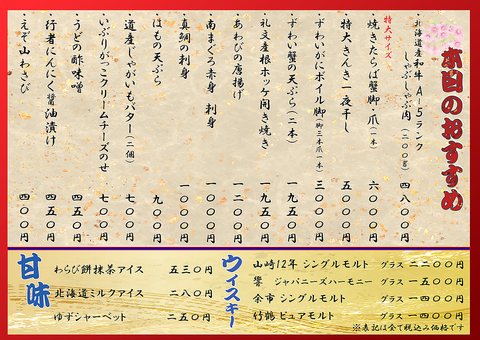 本日のおすすめ
・北海道産 和牛 A-5ランク
しゃぶしゃぶ肉(二〇〇g) 四八〇〇円
特大サイズ
・焼きたらば蟹 脚・爪(一本) 六〇〇〇円
・特大きんき一夜干し 五〇〇〇円
・ずわいがにボイル脚(脚三本爪一本) 三〇〇〇円
・ずわい蟹の天ぷら(二本) 一九五〇円
・礼文産根ホッケ開き焼き 一九五〇円
・あわびの唐揚げ 一二〇〇円
・南まぐろ赤身 刺身 一一〇〇円
・真鯛の刺身 一〇〇〇円
・はもの天ぷら 九〇〇円
・道産じゃがいもバター(二個) 七〇〇円
・いぶりがっこクリームチーズのせ 七〇〇円
・うどの酢味噌 四五〇円
・行者にんにく醤油漬け 四五〇円
・えぞ山わさび 四〇〇円
ウィスキー
山崎12年 シングルモルト グラス 二二〇〇円
響 ジャパニーズハーモニー グラス 一五〇〇円
余市 シングルモルト グラス 一四〇〇円
竹鶴 ピュアモルト グラス 一四〇〇円
甘味
わらび餅抹茶アイス 五三〇円
北海道ミルクアイス 二八〇円
ゆずシャーベット 二五〇円
※表記は全て税込み価格です